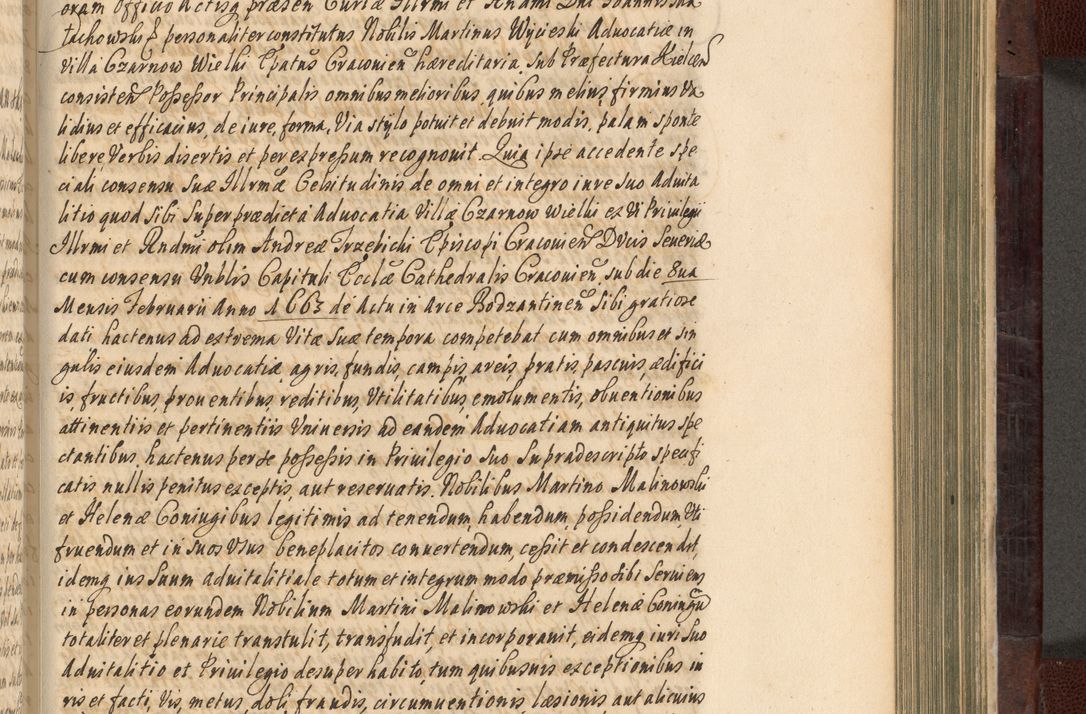 oram Officio Actisq̃ præsen Curiæ Illrmi et Rndmi Dni Joannis Ma
łachowski &c personaliter constitutus Nobilis Martinus Wycieski Aduocatiæ in
Villa Czarnow Wielki Epatus Cracouien̄ hæreditaria, sub Præfectura Kielcen̄
consisten̄ Possessor Principalis omnibus melioribus quibus melius, firmius Va
lidius et efficacius, de iure, forma, Via stylo potuit et debuit modis, palam sponte
libere, Verbis disertis et per expressum recognouit. Quia ipse accedente spe
ciali consensu Suæ Illrmæ Celsitudinis de omni et integro iure suo Aduita
litio quod sibi super prædicta Aduocatia Villæ Czarnow Wielki ex Vi Priuilegij
Illrmi et Rndmi olim Andreæ Trzebicki Episcopi Cracouien̄ Ducis Seueriæ
cum consensu Vnblis Capituli Ecclæ Cathedralis Cracouien̄, sub die 8ua
Mensis Februarii Anno 1663 de Actu in Arce Bodzantinen̄ sibi gratiose
dati hactenus ad extrema Vitæ suæ tempora competebat cum omnibus et sin
gulis eiusdem Aduocatiæ, agris, fundis, campis, areis, pratis, pascuis, ædifici
is, fructibus, prouentibus, reditibus, Vtilitatibus, emolumentis, obuentionibus
attinentiis et pertinentiis Vniuersis ad eandem Aduocatiam antiquitus spe
ctantibus, hactenus per se possessis in Priuilegio suo supradescripto specifi
catis nullis penitus exceptis, aut reseruatis. Nobilibus Martino Malinowski
et Helenæ Coniugibus legitimis ad tenendum, habendum, possidendum, Vti
fruendum et in suos Vsus beneplacitos conuertendum, cessit et condescendit,
idemq̃ ius suum aduitalitiale totum et integrum modo præmisso sibi seruiens
in personas eorundem Nobilium Martini Malinowski et Helenæ Coniugũ
totaliter et plenarie transtulit, transfudit, et incorporauit, eidemq̃ iuri suo
Aduitalitio et Priuilegio desuper habito, tum quibusuis exceptionibus iu
ris et facti, Vis, metus, doli, fraudis, circumuentionis, læsionis, aut alicuius